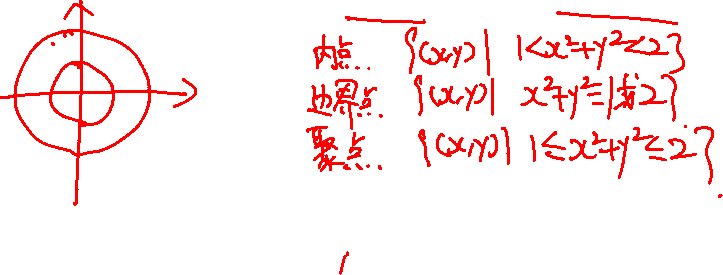 内点. {(x,y)| 1<x²+y²<2}
边界点 {(x,y)| x²+y²=1或2}
聚点. {(x,y)| 1≤x²+y²≤2}.